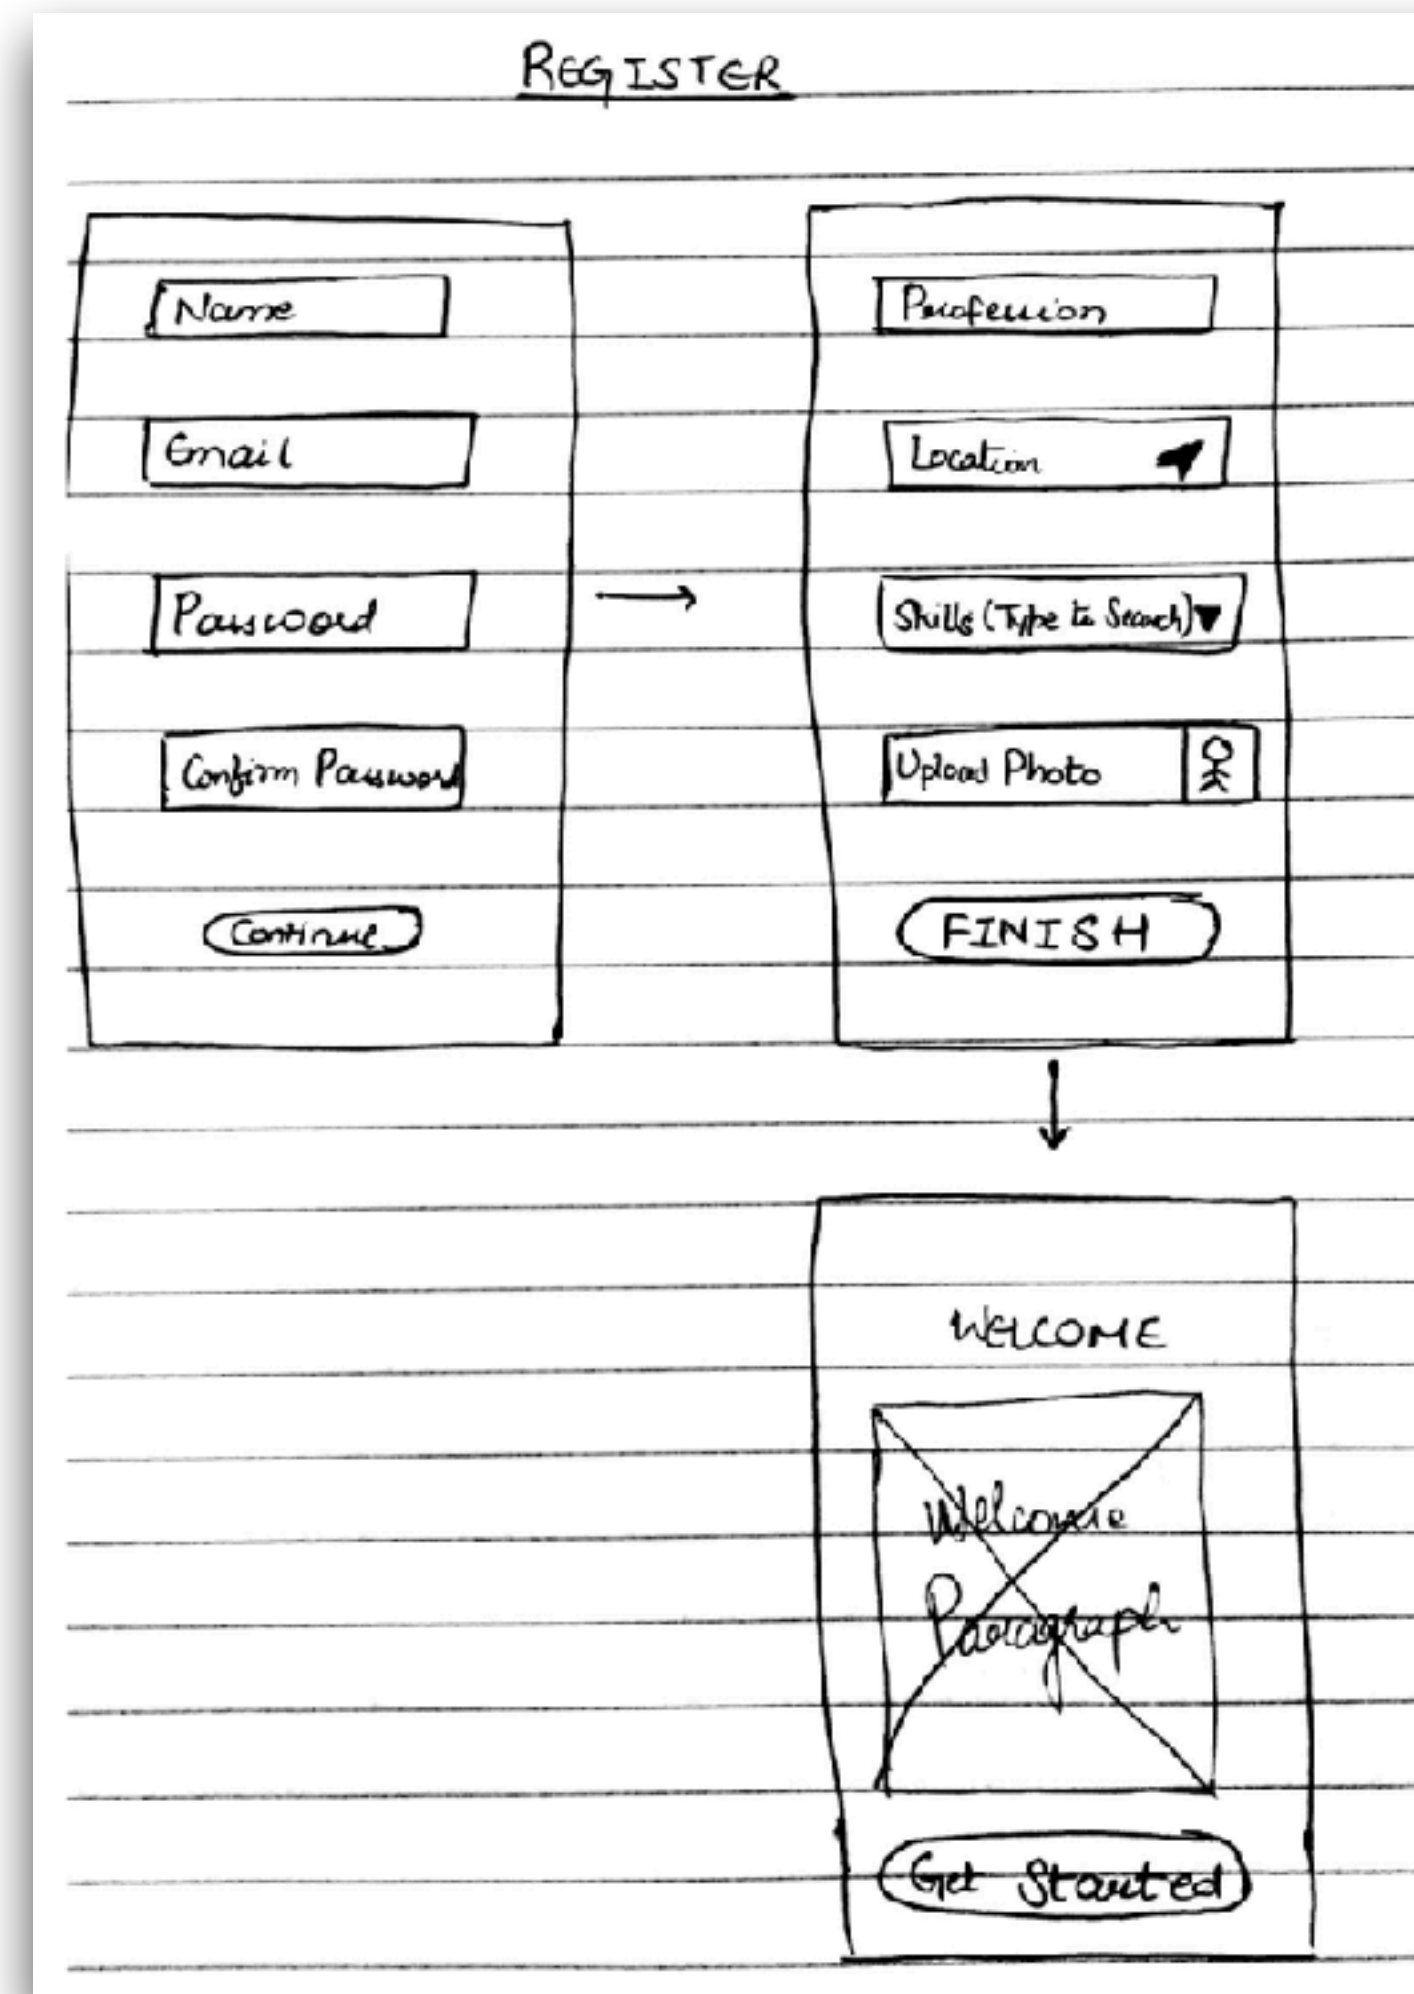 REGISTER
Name
Email
Password
Confirm Password
Continue
Profession
Location
Skills (Type to Search)
Upload Photo
FINISH
WELCOME
Welcome
Paragraph
Get Started